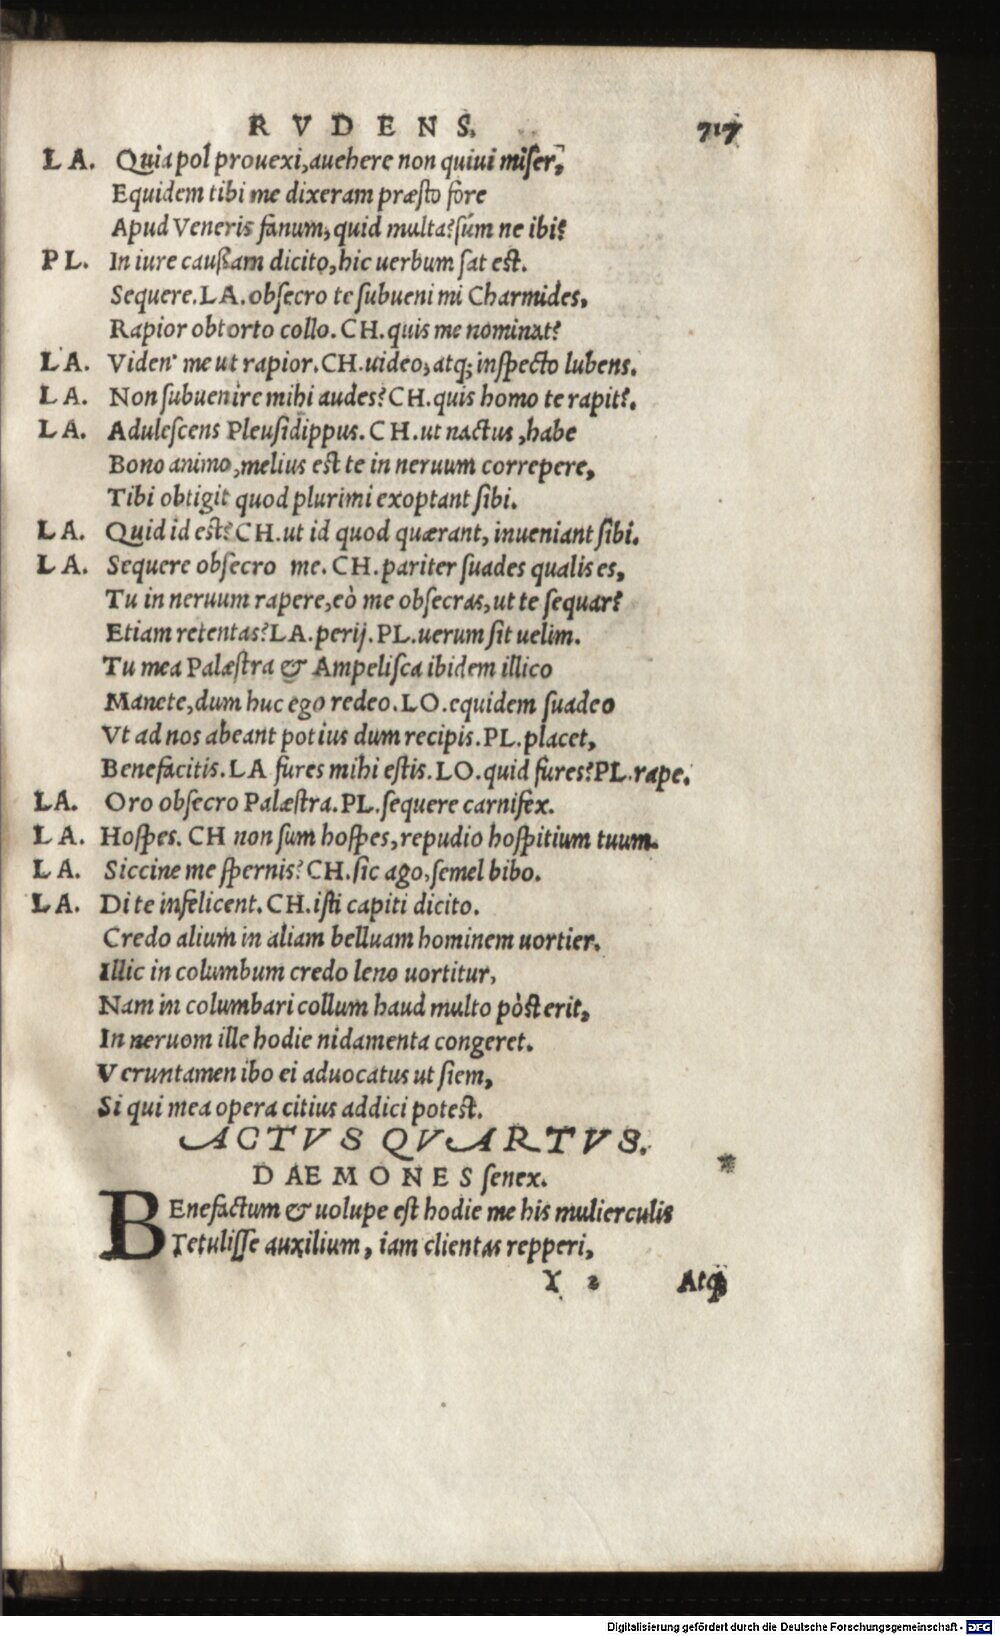 RVDENS. 717
LA. Quia pol prouexi, auehere non quiui miser,
Equidem tibi me dixeram præsto fore
Apud Veneris fanum, quid multa? súm ne ibi?
PL. In iure caußam dicito, hic uerbum sat est.
Sequere. LA. obsecro te subueni mi Charmides,
Rapior obtorto collo. CH. quis me nominat?
LA. Viden' me ut rapior. CH. uideo, atq; inspecto lubens.
LA. Non subuenire mihi audes? CH. quis homo te rapit?
LA. Adulescens Pleusidippus. CH. ut nactus, habe
Bono animo, melius est te in neruum correpere,
Tibi obtigit quod plurimi exoptant sibi.
LA. Quid id est? CH. ut id quod quærant, inueniant sibi.
LA. Sequere obsecro me. CH. pariter suades qualis es,
Tu in neruum rapere, eò me obsecras, ut te sequar?
Etiam retentas? LA. perij. PL. uerum sit uelim.
Tu mea Palæstra & Ampelisca ibidem illico
Manete, dum huc ego redeo. LO. equidem suadeo
Vt ad nos abeant potius dum recipis. PL. placet,
Benefacitis. LA fures mihi estis. LO. quid fures? PL. rape.
LA. Oro obsecro Palæstra. PL. sequere carnifex.
LA. Hospes. CH non sum hospes, repudio hospitium tuum.
LA. Siccine me spernis? CH. sic ago, semel bibo.
LA. Di te infelicent. CH. isti capiti dicito.
Credo alium in aliam belluam hominem uortier.
Illic in columbum credo leno uortitur,
Nam in columbari collum haud multo pòst erit,
In neruom ille hodie nidamenta congeret.
Veruntamen ibo ei aduocatus ut siem,
Si qui mea opera citius addici potest.
ACTVS QVARTVS.
DAEMONES senex.
BEnefactum & uolupe est hodie me his mulierculis
Tetulisse auxilium, iam clientas repperi,
Y 2 Atq;
Digitalisierung gefördert durch die Deutsche Forschungsgemeinschaft - DFG